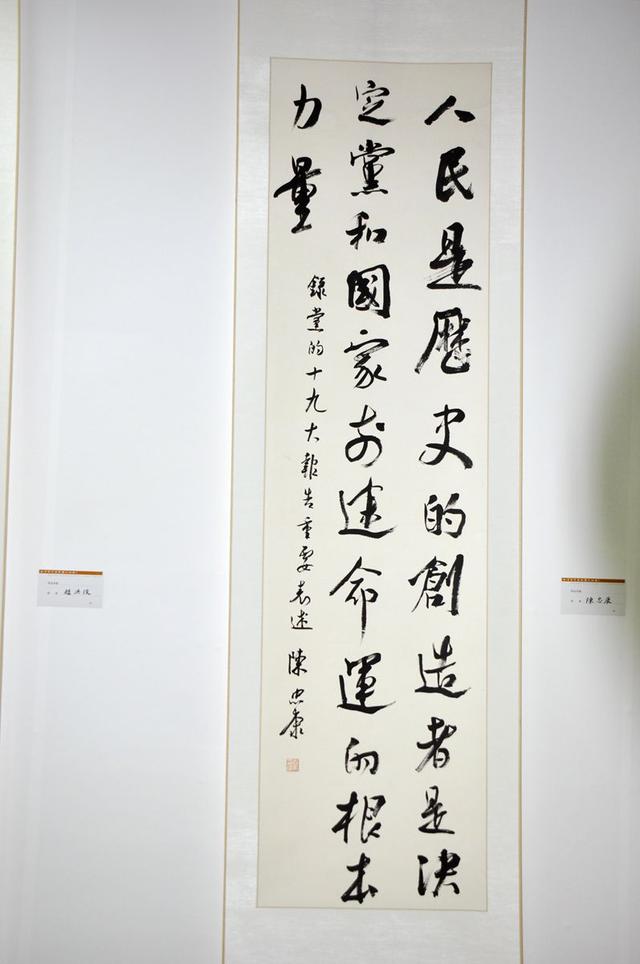 人民是歷史的創造者是決
定黨和國家前途命運的根本
力量
錄黨的十九大報告重要表述 陳忠康
陳忠康